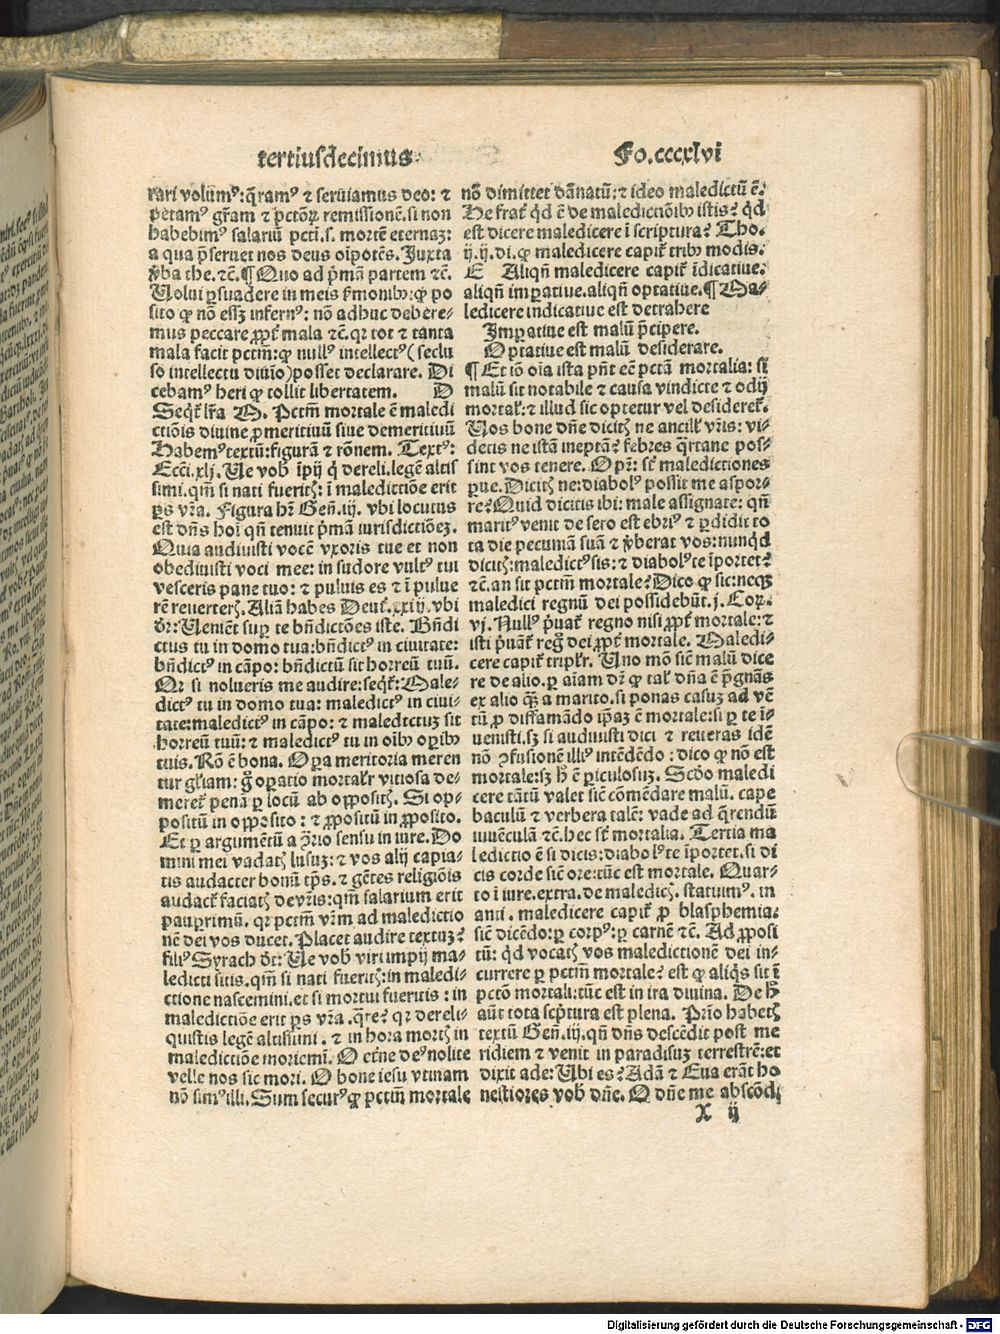 tertiusdecimus
Fo.cccxlvi
rari volumꝰ: q̄ramꝰ ⁊ seruiamus deo: ⁊
petamꝰ gr̄am ⁊ pctōꝝ remissionē. si non
habebimꝰ salariū pcti.s. mortē eternaꝫ:
a qua p̄seruet nos deus oīpotēs. Juxta
ꝟba the. ⁊c̄. ¶ Quo ad p̄mā partem ⁊c̄.
Uolui ꝑsuadere in meis ẜmonibꝰ: ꝙ po
sito ꝙ nō esſꝫ infernꝰ: nō adhuc debere⸗
mus peccare ꝓpt̄ mala ⁊c̄. qꝛ tot ⁊ tanta
mala facit pctm̄: ꝙ nullꝰ intellectꝰ (seclu
so intellectu diuīo) posset declarare. Di
cebamꝰ heri ꝙ tollit libertatem. D
Seqt̄ lr̄a M. Pctm̄ mortale ē maledi
ctiōis diuine ꝓmeritiuū siue demeritiuū
Habemꝰ textū: figurā ⁊ rōnem. Textꝰ:
Ecci.xlj. Ue vob̄ īpij q̄ dereli. legē altis
simi. qm̄ si nati fueritꝭ: ī maledictiōe erit
ꝑs vr̄a. Figura hr̄ Geñ.iij. vbi locutus
est dn̄s hoī qn̄ tenuit p̄mā iurisdictiōeꝫ.
Quia audiuisti vocē vxoris tue et non
obediuisti voci mee: in sudore vultꝰ tui
vesceris pane tuo: ⁊ puluis es ⁊ ī pulue
rē reuerterꝭ. Aliā habes Deut̄.xxiij. vbi
dr̄: Ueniēt suꝑ te bn̄dictōes iste. Bn̄di
ctus tu in domo tua: bn̄dictꝰ in ciuitate:
bn̄dictꝰ in cāpo: bn̄dictū sit horreū tuū.
Qꝛ si nolueris me audire: seqt̄: Male⸗
dictꝰ tu in domo tua: maledictꝰ in ciui⸗
tate: maledictꝰ in cāpo: ⁊ maledctuꝫ sit
horreū tuū: ⁊ maledictꝰ tu in oībꝰ oꝑibꝰ
tuis. Rō ē bona. Oꝑa meritoria meren
tur gl̄iam: g̊ oꝑatio mortalr̄ vitiosa de⸗
meret̄ penā ꝑ locū ab oppositꝭ. Si op⸗
positū in opposito: ⁊ ꝓpositū in ꝓposito.
Et ꝑ argumētū a ꝯ̄rio sensu in iure. Do
mini mei vadatꝭ lusuꝫ: ⁊ vos alij capia⸗
tis audacter bonū tp̄s. ⁊ gētes religiōis
audact̄ faciatꝭ de vr̄is: qm̄ salarium erit
pauꝑrimū. qꝛ pctm̄ vr̄m ad maledictio
nē dei vos ducet. Placet audire textuꝫ?
filiꝰ Syrach dt̄: Ue vob̄ viri impij ma⸗
ledicti sitis. qm̄ si nati fueritꝭ: in maledi⸗
ctione nascemini. et si mortui fueritis: in
maledictiōe erit ꝑs vr̄a. q̄re? qꝛ dereli⸗
quistis legē altissimi. ⁊ in hora mortꝭ in
maledictiōe moriemī. O etn̄e deꝰ nolite
velle nos sic mori. O bone iesu vtinam
nō simꝰ illi. Sum securꝰ ꝙ pctm̄ mortale
nō dimittet dānatū: ⁊ ideo maledictū ē.
He frat̄ qd̄ ē de maledictiōibꝰ istis? qd̄
est dicere maledicere ī scriptura? Tho.
ij.ij. di. ꝙ maledicere capit̄ tribꝰ modis.
E Aliqn̄ maledicere capit̄ īdicatiue.
aliqn̄ imꝑatiue. aliqn̄ optatiue. ¶ Ma⸗
ledicere indicatiue est detrahere
Imꝑatiue est malū p̄cipere.
Optatiue est malū desiderare.
¶ Et iō oīa ista pn̄t eē pctā mortalia: si
malū sit notabile ⁊ causa vindicte ⁊ odij
mortal̄: ⁊ illud sic optetur vel desideret̄.
Uos bone dn̄e dicitꝭ ne ancillꝭ vr̄is: vi⸗
detis ne istā ineptā? febres q̄rtane pos⸗
sint vos tenere. O pr̄: st̄ maledictiones
ꝑue. Dicitꝭ ne: diabolꝰ possit me aspor⸗
re? Quid dicitis ibi: male assignate: qn̄
maritꝰ venit de sero est ebriꝰ ⁊ ꝑdidit to
ta die pecuniā suā ⁊ ꝟberat vos: nunqd̄
dicitꝭ: maledictꝰ sis: ⁊ diabolꝰ te īportet?
⁊c̄. an sit pctm̄ mortale? Dico ꝙ sic: neqꝫ
maledici regnū dei possidebūt. j. Coꝝ.
vj. Nullꝰ p̄uat̄ regno nisi ꝓpt̄ mortale: ⁊
isti p̄uāt̄ reg̊ dei ꝓpt̄ mortale. Maledi⸗
cere capit̄ tripl̄r. Uno mō sic̄ malū dice
re de alio. ꝑ aīam dr̄ ꝙ tal̄ dn̄a ē p̄gnās
ex alio qꝫ a marito. si ponas casuꝫ ad vē
tū ꝓ diffamādo ipaꝫ ē mortale: si ꝑ te ī⸗
uenisti. sꝫ si audiuisti dici ⁊ reueras idē
nō ꝯfusionē illiꝰ intēdēdo: dico ꝙ nō est
mortale: sꝫ h̄ ē ꝑiculosuꝫ. Scdo maledi
cere tātū valet sic̄ cōmēdare malū. cape
baculū ⁊ verbera talē: vade ad q̄rendū
iuuēculā ⁊c̄. hec st̄ mortalia. Tertia ma
ledictio ē si dicis: diabolꝰ te īportet. si di
cis corde sic̄ ore: tūc est mortale. Quar⸗
to ī iure. extra. de maledicꝭ. statuimꝰ. in
anti. maledicere capit̄ ꝓ blasphemia:
sic̄ dicēdo: ꝑ corpꝰ: ꝑ carnē ⁊c̄. Ad ꝓposi
tū: qd̄ vocatꝭ vos maledictionē dei in⸗
currere ꝑ pctm̄ mortale? est ꝙ aliq̄s sit ī
pctō mortali: tūc est in ira diuina. De h̄
aūt tota scp̄tura est plena. Prīo habetꝭ
textū Geñ.iij. qn̄ dn̄s descēdit post me
ridiem ⁊ venit in paradisuꝫ terrestrē: et
dixit ade: Ubi es? Adā ⁊ Eua erāt ho
nestiores vob̄ dn̄e. O dn̄e me abscōdi
X ij
Digitalisierung gefördert durch die Deutsche Forschungsgemeinschaft - DFG